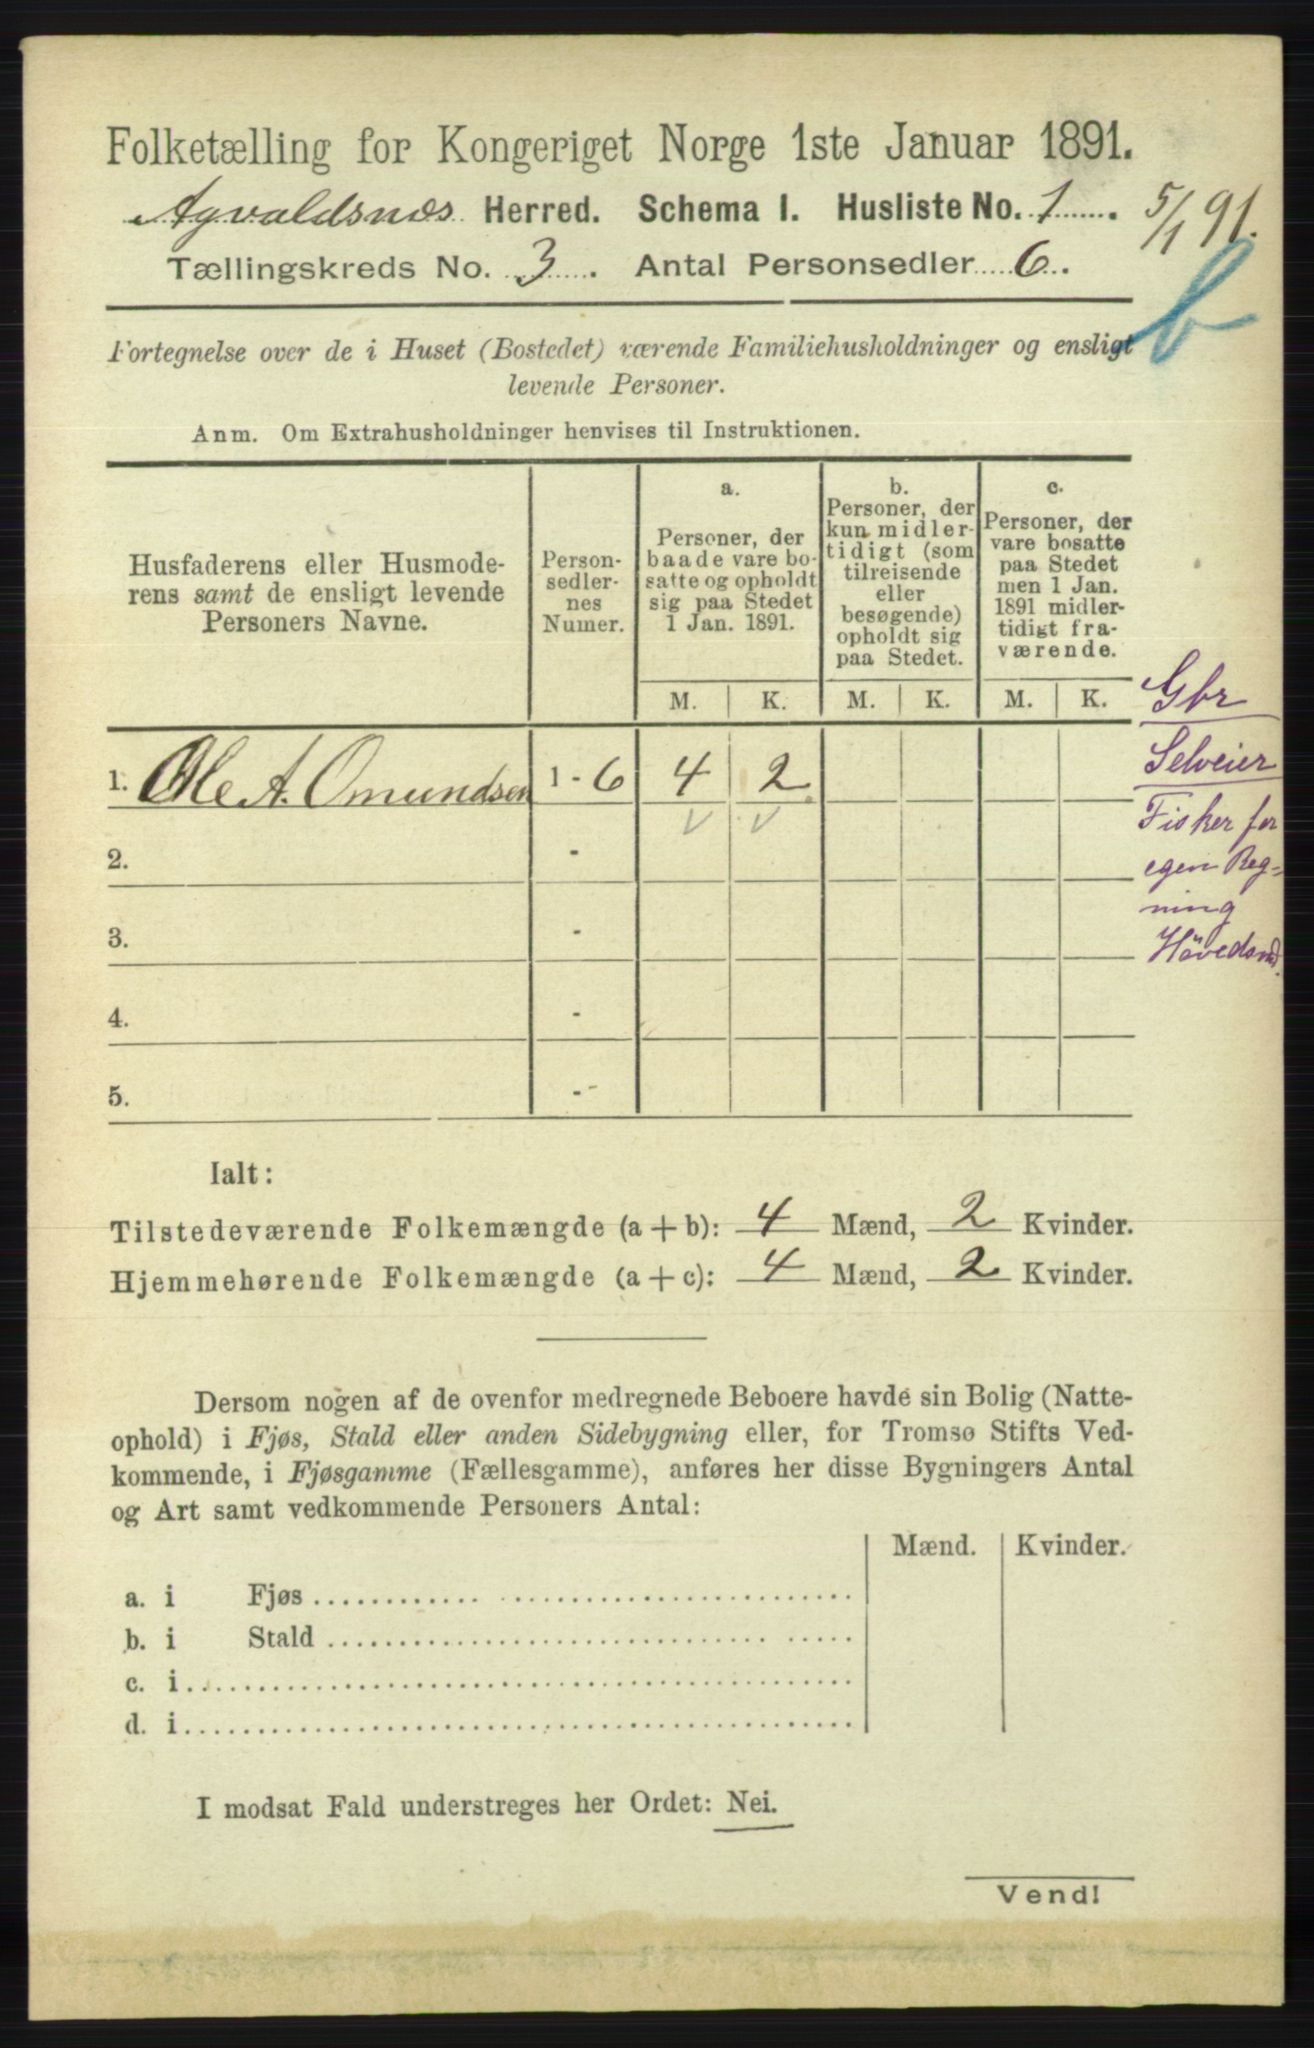 Folketælling for Kongeriget Norge 1ste Januar 1891.
Agvaldsnæs Herred. Schema I. Husliste No. 1
5/1 91.
Tællingskreds No. 3. Antal Personsedler 6.
b
Fortegnelse over de i Huset (Bostedet) værende Familiehusholdninger og ensligt
levende Personer.
Anm. Om Extrahusholdninger henvises til Instruktionen.
Husfaderens eller Husmode-
rens samt de ensligt levende
Personers Navne.
Person-
sedler-
nes
Numer.
a.
Personer, der
baade vare bo-
satte og opholdt
sig paa Stedet
1 Jan. 1891.
b.
Personer, der
kun midler-
tidigt (som
tilreisende
eller
besøgende)
opholdt sig
paa Stedet.
c.
Personer, der
vare bosatte
paa Stedet
men 1 Jan.
1891 midler-
tidigt fra-
værende.
M. K. M. K. M. K.
1. Ole A. Omundsen 1 - 6 4 2
2. -
3. -
4. -
5. -
Gbr
Selveier
Fisker for
egen Reg-
ning
Høvedsmd.
Ialt:
Tilstedeværende Folkemængde (a + b): 4 Mænd, 2 Kvinder.
Hjemmehørende Folkemængde (a + c): 4 Mænd, 2 Kvinder.
Dersom nogen af de ovenfor medregnede Beboere havde sin Bolig (Natte-
ophold) i Fjøs, Stald eller anden Sidebygning eller, for Tromsø Stifts Ved-
kommende, i Fjøsgamme (Fællesgamme), anføres her disse Bygningers Antal
og Art samt vedkommende Personers Antal:
Mænd. Kvinder.
a. i Fjøs
b. i Stald
c. i
d. i
I modsat Fald understreges her Ordet: Nei.
Vend!